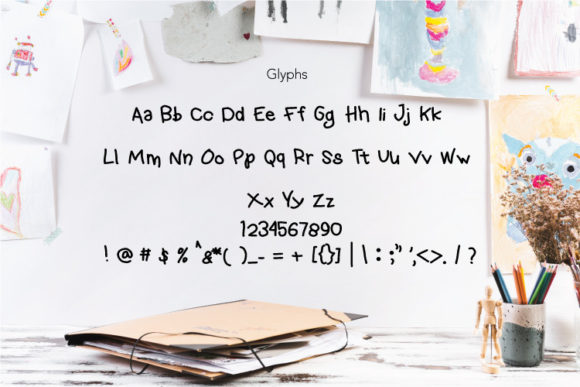 Glyphs
Aa Bb Cc Dd Ee Ff Gg Hh Ii Jj Kk
Ll Mm Nn Oo Pp Qq Rr Ss Tt Uu Vv Ww
Xx Yy Zz
1234567890
! @ # $ % ^ & * ( ) _ - = + [ { } ] | \ : ; " ' , < > . / ?